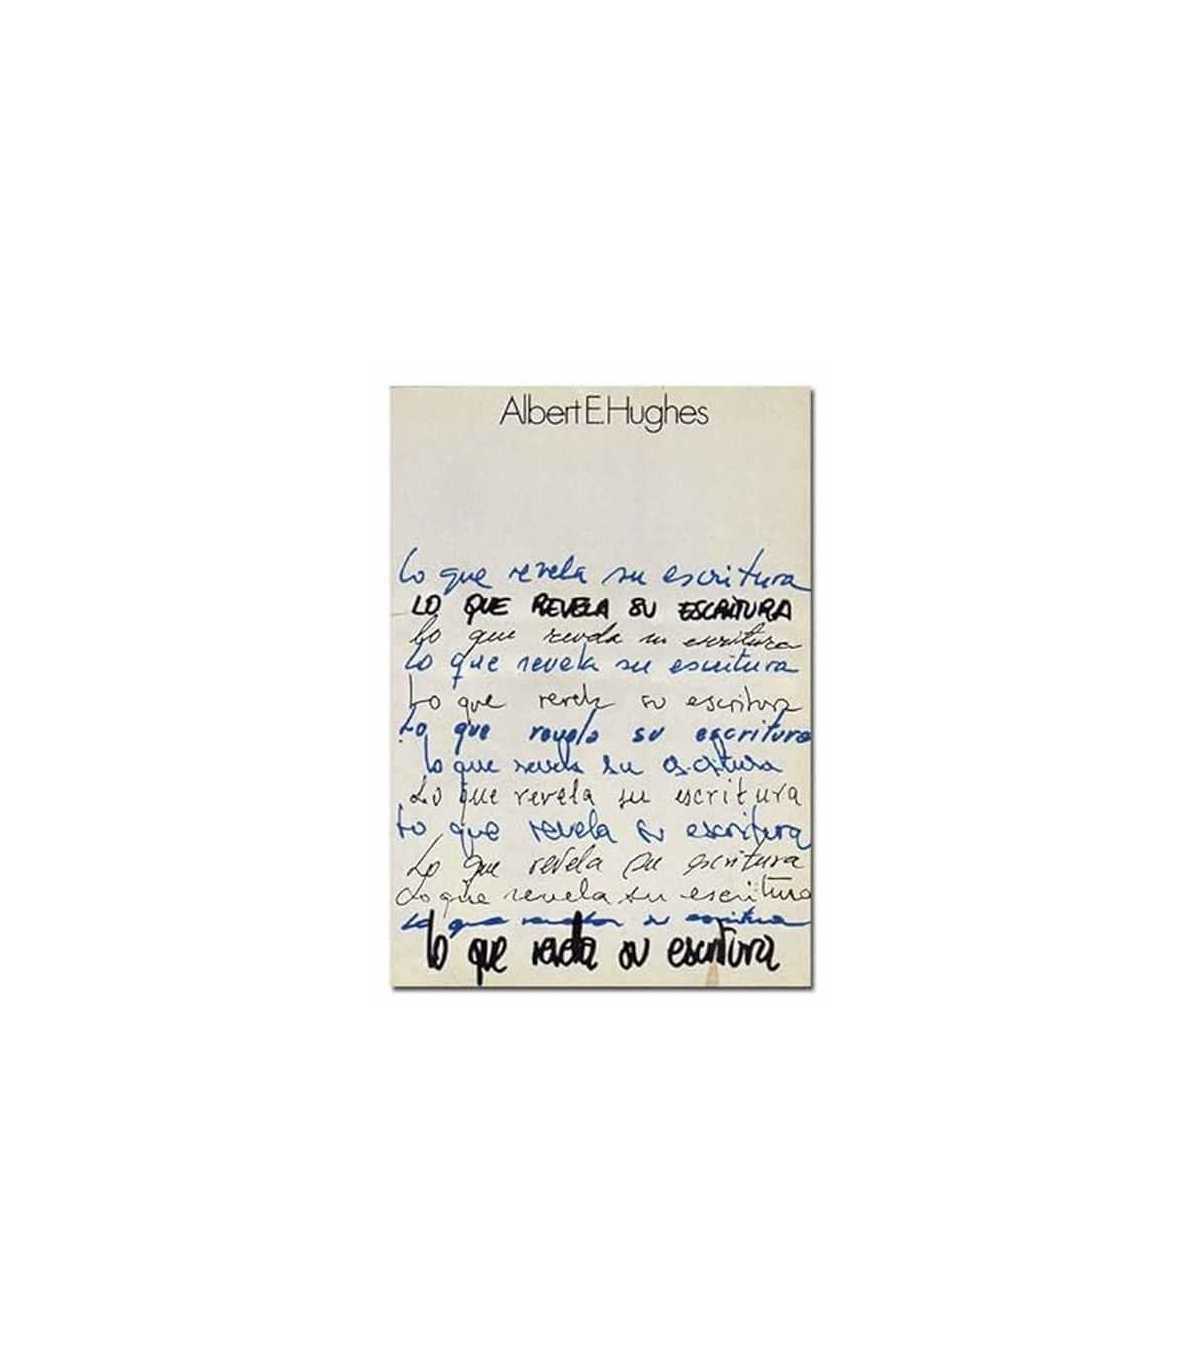 Albert E. Hughes
Lo que revela su escritura
LO QUE REVELA SU ESCRITURA
Lo que revela su escritura
Lo que revela su escritura
Lo que revela su escritura
Lo que revela su escritura
Lo que revela su escritura
Lo que revela su escritura
Lo que revela su escritura
Lo que revela su escritura
Lo que revela su escritura
Lo que revela su escritura
Lo que revela su escritura